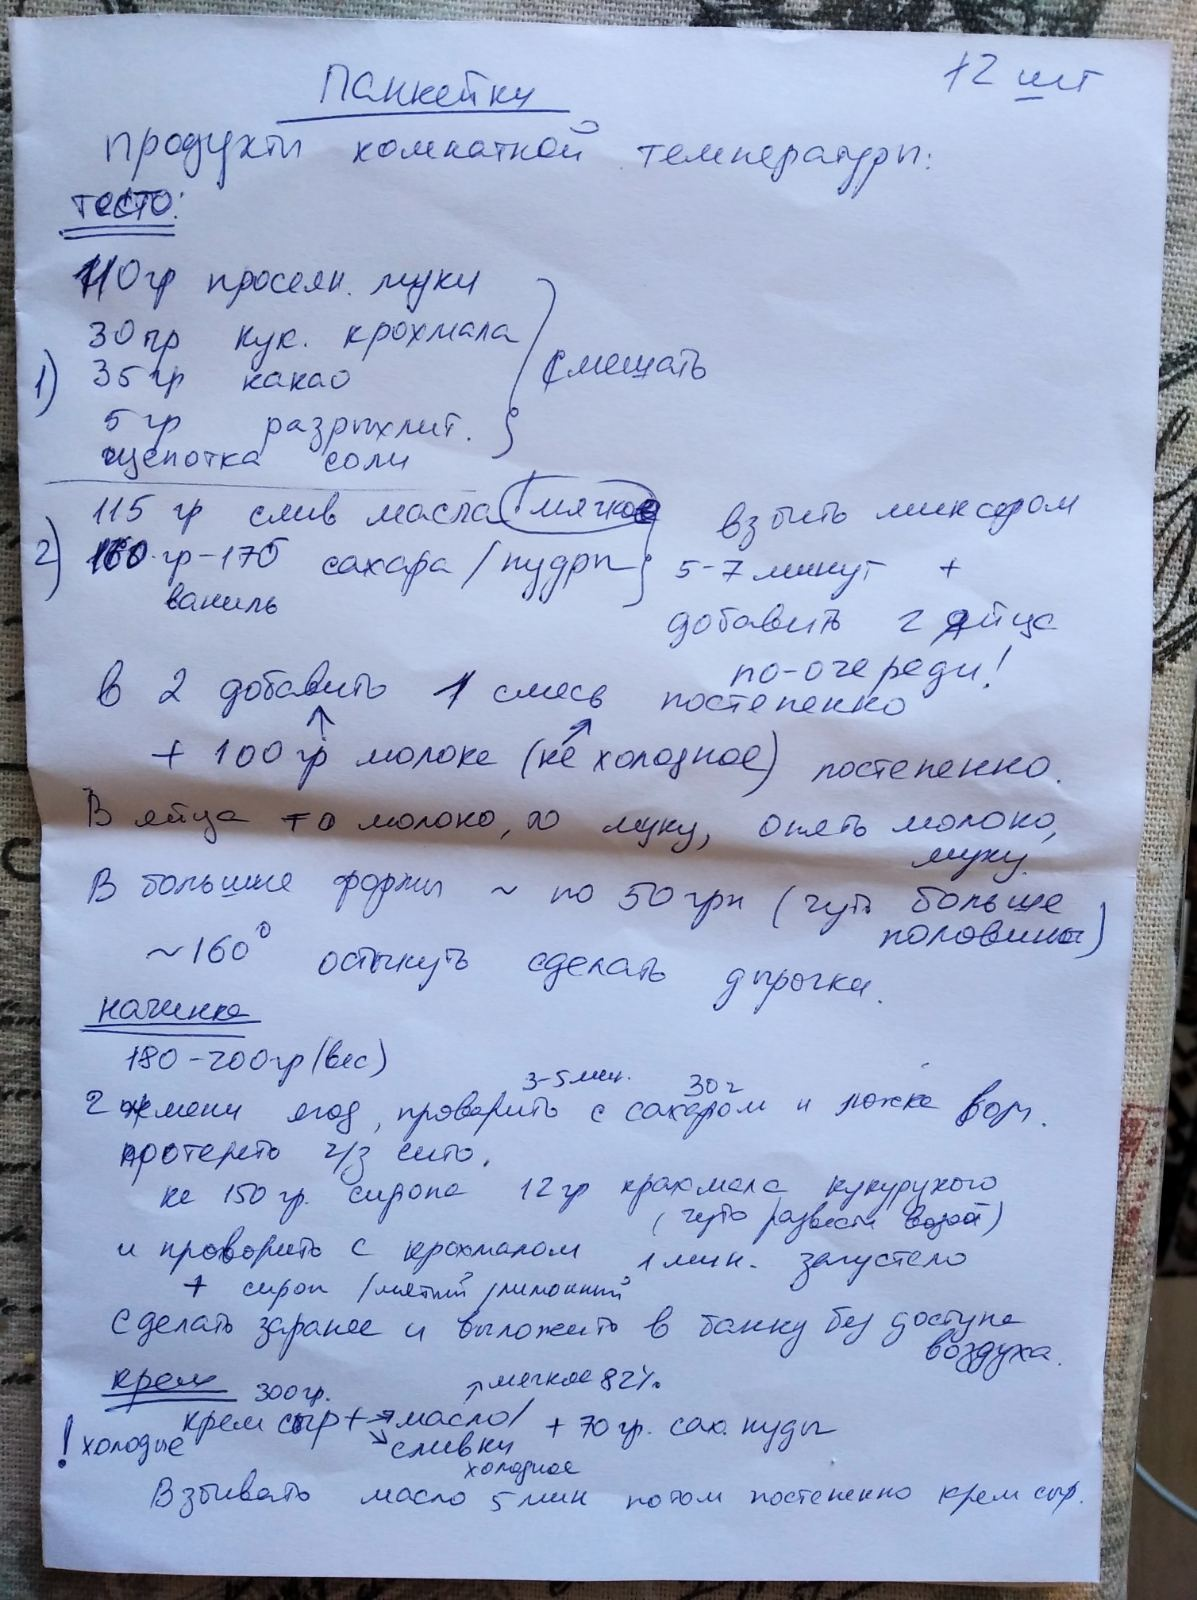 12 шт
Панкейки
продукты комнатной температуры:
тесто:
110 гр просеян. муки
30 гр кук. крохмала
1) 35 гр какао
смешать
5 гр разрыхлит.
щепотка соли
115 гр слив масла мягкое
взбить миксером
2) 160 гр-170 сахара / пудры
5-7 минут +
ваниль
добавить 2 яйца
по-очереди!
в 2 добавить 1 смесь постепенно
+ 100 гр молока (не холодное) постепенно.
В яйца то молоко, то муку, опять молоко,
муку.
В большие формы ~ по 50 грм (чуть больше
половины)
~160° остынуть сделать дырочки.
начинка
180-200 гр (вес)
3-5 мин. 30 г
2 жмени ягод, проварить с сахаром и ложка вод.
протереть ч/з сито.
на 150 гр. сиропа 12 гр крахмала кукурузного
(чуть развести водой)
и проварить с крохмалом 1 мин. загустело
+ сироп /мятный /лимонный
Сделать заранее и выложить в банку без доступа
воздуха.
крем 300 гр. мягкое 82%
крем сыр + масло/ + 70 гр. сах. пуды
! холодные сливки
холодное
Взбивать масло 5 мин потом постепенно крем сыр.